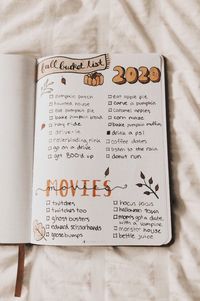 fall bucket list
2020
pumpkin patch
haunted house
eat pumpkin pie
bake pumpkin bread
hay ride
drive in
rollerblading rink
go on a drive
get BOO'd up
eat apple pie
carve a pumpkin
caramel apples
corn maze
bake pumpkin muffins
drink a psl
coffee dates
listen to the rain
donut run
MOVIES
twitches
twitches too
ghost busters
edward scissorhands
goosebumps
hocus pocus
halloween town
mom's got a date
with a vampire
monster house
beetle juice